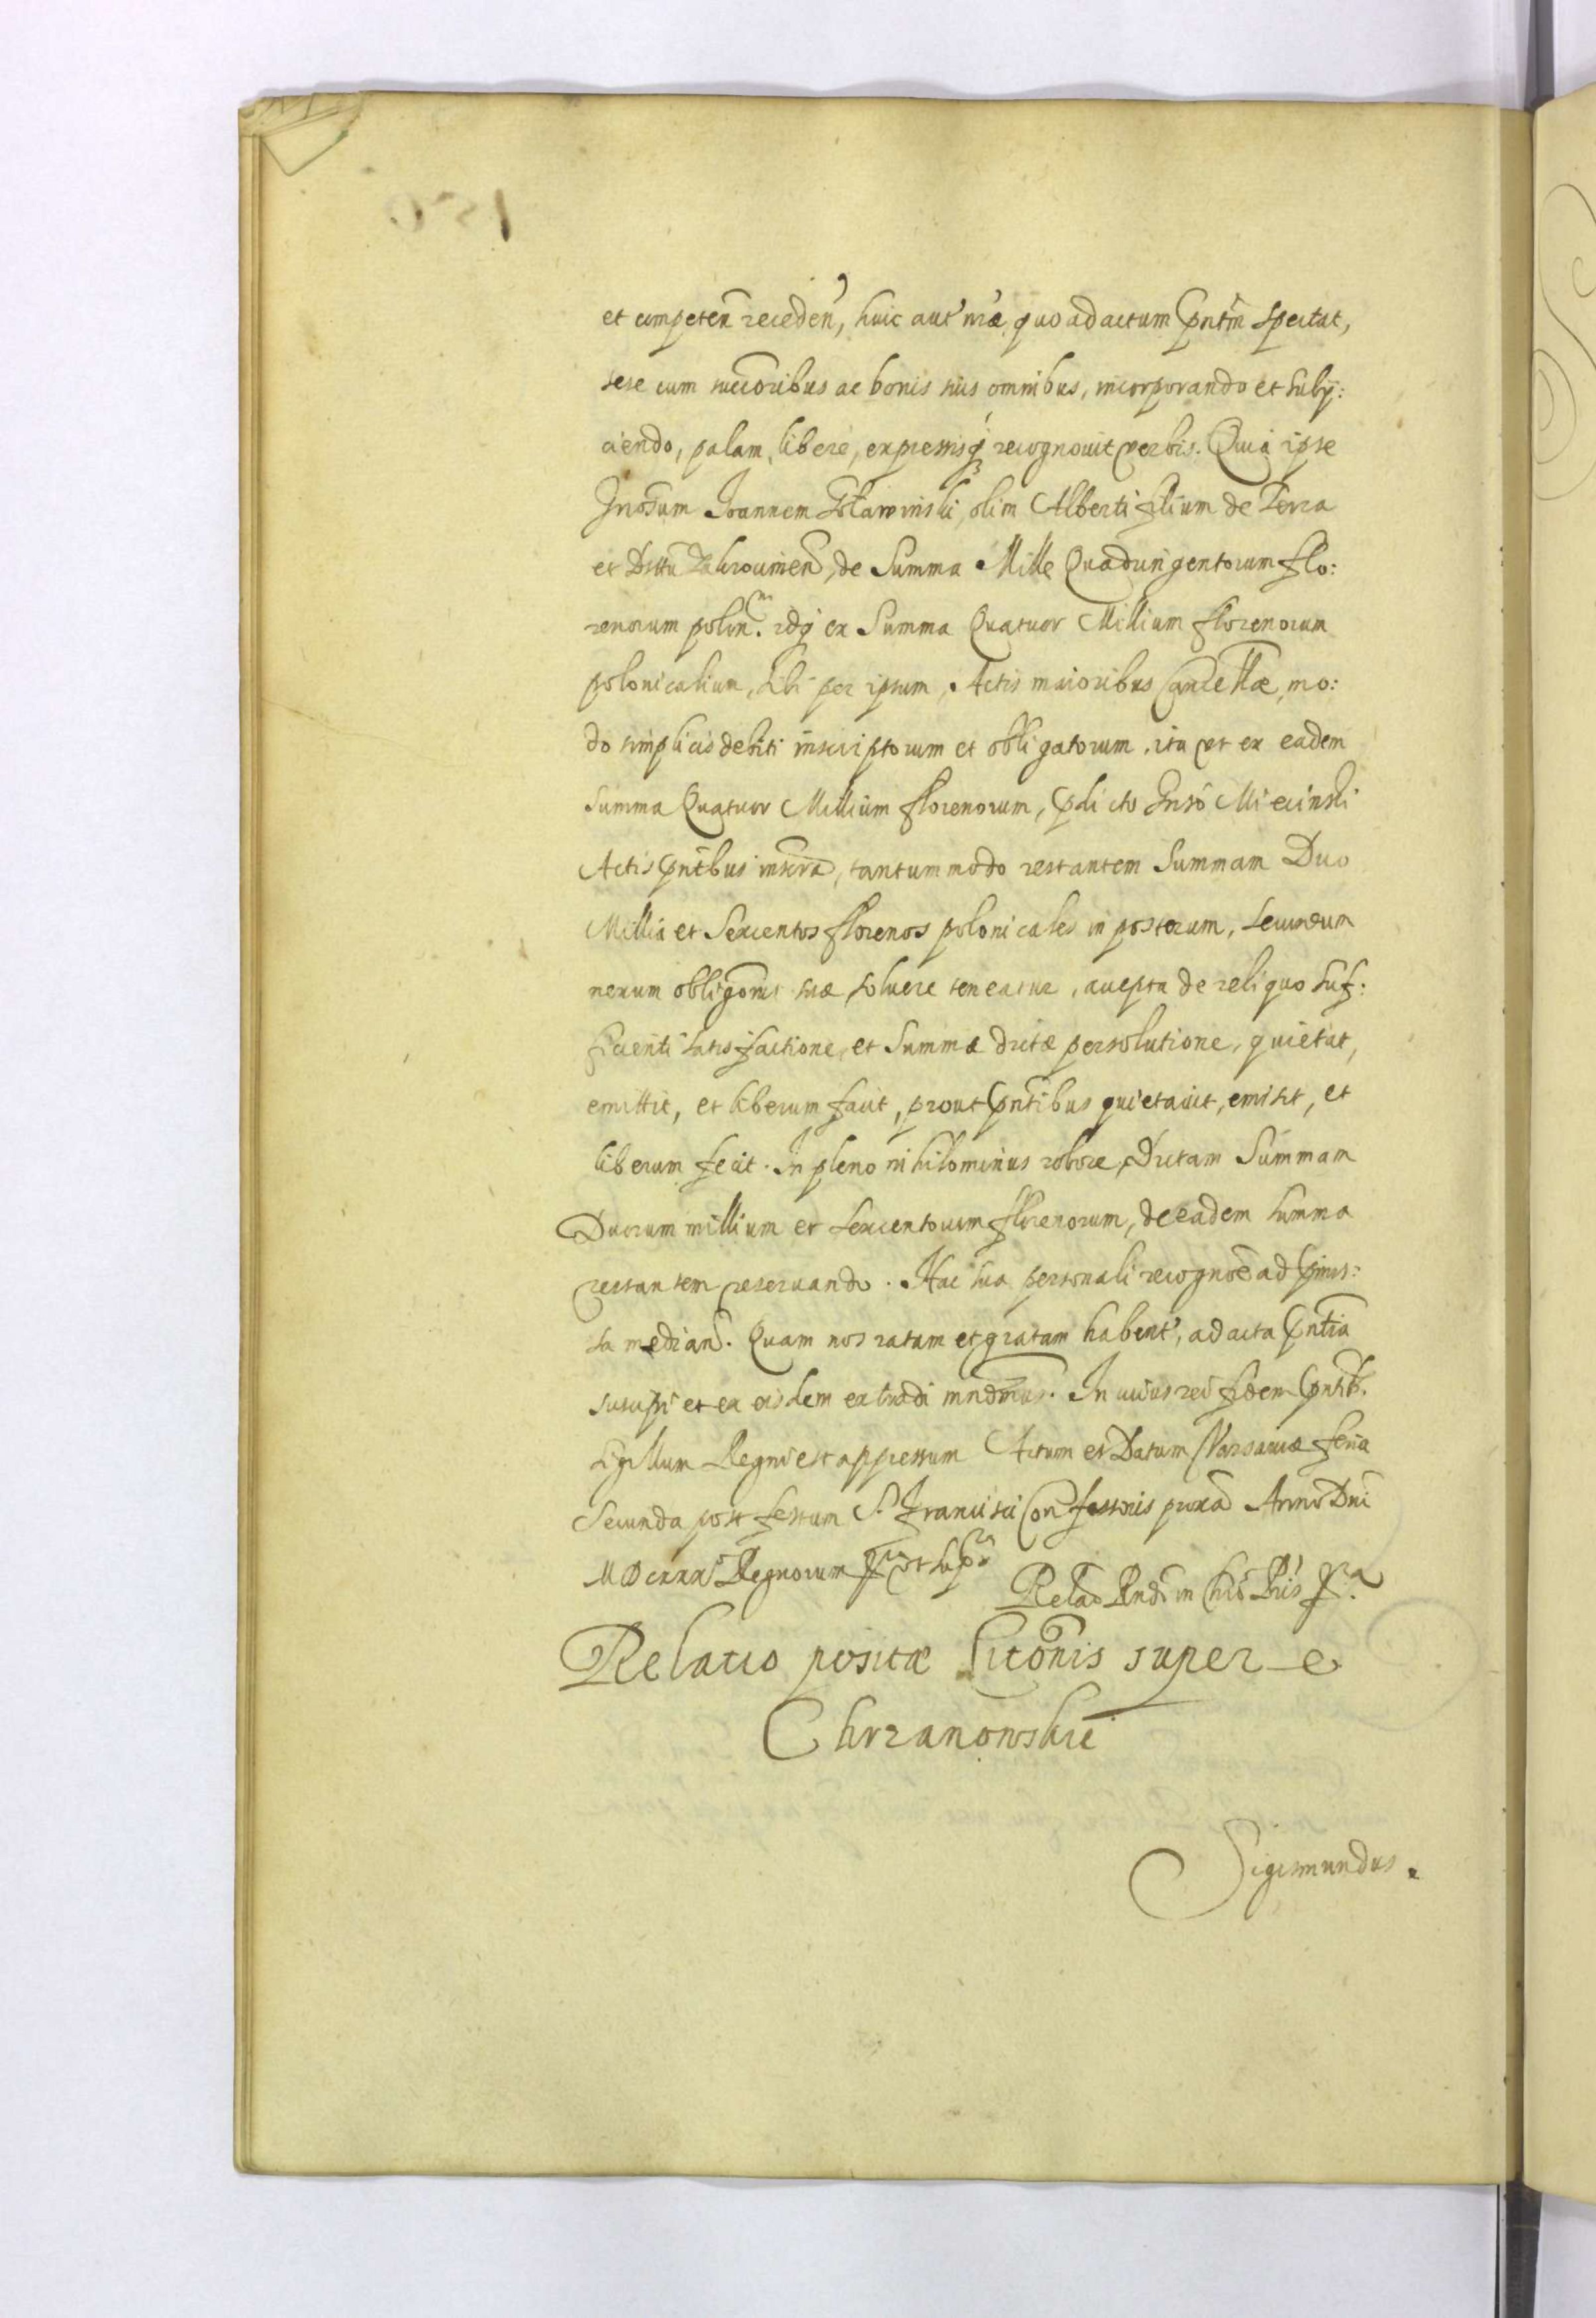 et competen̄ receden̄, huic aut' nr̄æ quo ad actum pn̄tm̄ spectat,
sese cum succōribus ac bonis suis omnibus, incorporando et subij:
ciendo, palam, libere, expressisq́ recognouit verbis. Quia ipse
Gnōsum Joannem olim Alberti filium de Terra
et Dsttū Zakroiimen̄, de Summa Mille Quadringentorum flo:
renorum polon̄. idq́ ex Summa Quatuor Millium florenorum
polonicalium, sibi per ipsum, Actis maioribus Cancellæ, mo:
do simplicis debiti inscriptorum et obligatorum, ita vt ex eadem
summa Quatuor Millium florenorum, pdicto Gnsō Miecinski
Actis pn̄tibus inscrā, tantummodo restantem Summam Duo
Millia et Sexcentos florenos polonicales in posterum, secundum
nexum obligōnis suæ soluere teneatur, accepta de reliquo suf:
ficienti satisfactione, et Summæ dictæ persolutione, quietat,
emittit, et liberum facit, prout pn̄tibus quietauit, emisit, et
liberum fecit. In pleno nihilominus robore, Dictam Summam
Duorum millium et sexcentorum florenorum, de eadem summa
restantem reseruando. Hac sua personali recognōe ad pmis:
sa median̄. Quam nos ratam et gratam haben̄t', ad acta pn̄tia
suscipi et ex eisdem extradi mndmus. In cuius rei fidem pn̄tib.
Sigillum Regni est appressum Actum et Datum Varsauiæ feria
Secunda post festum S. Francisci Confessoris proxa Anno Dni
MDCXXX Regnorum vt supra Relao Rndi in Chrō Pris
Relatio positæ Citōnis super
Chrzanowskie
Sigismundus.